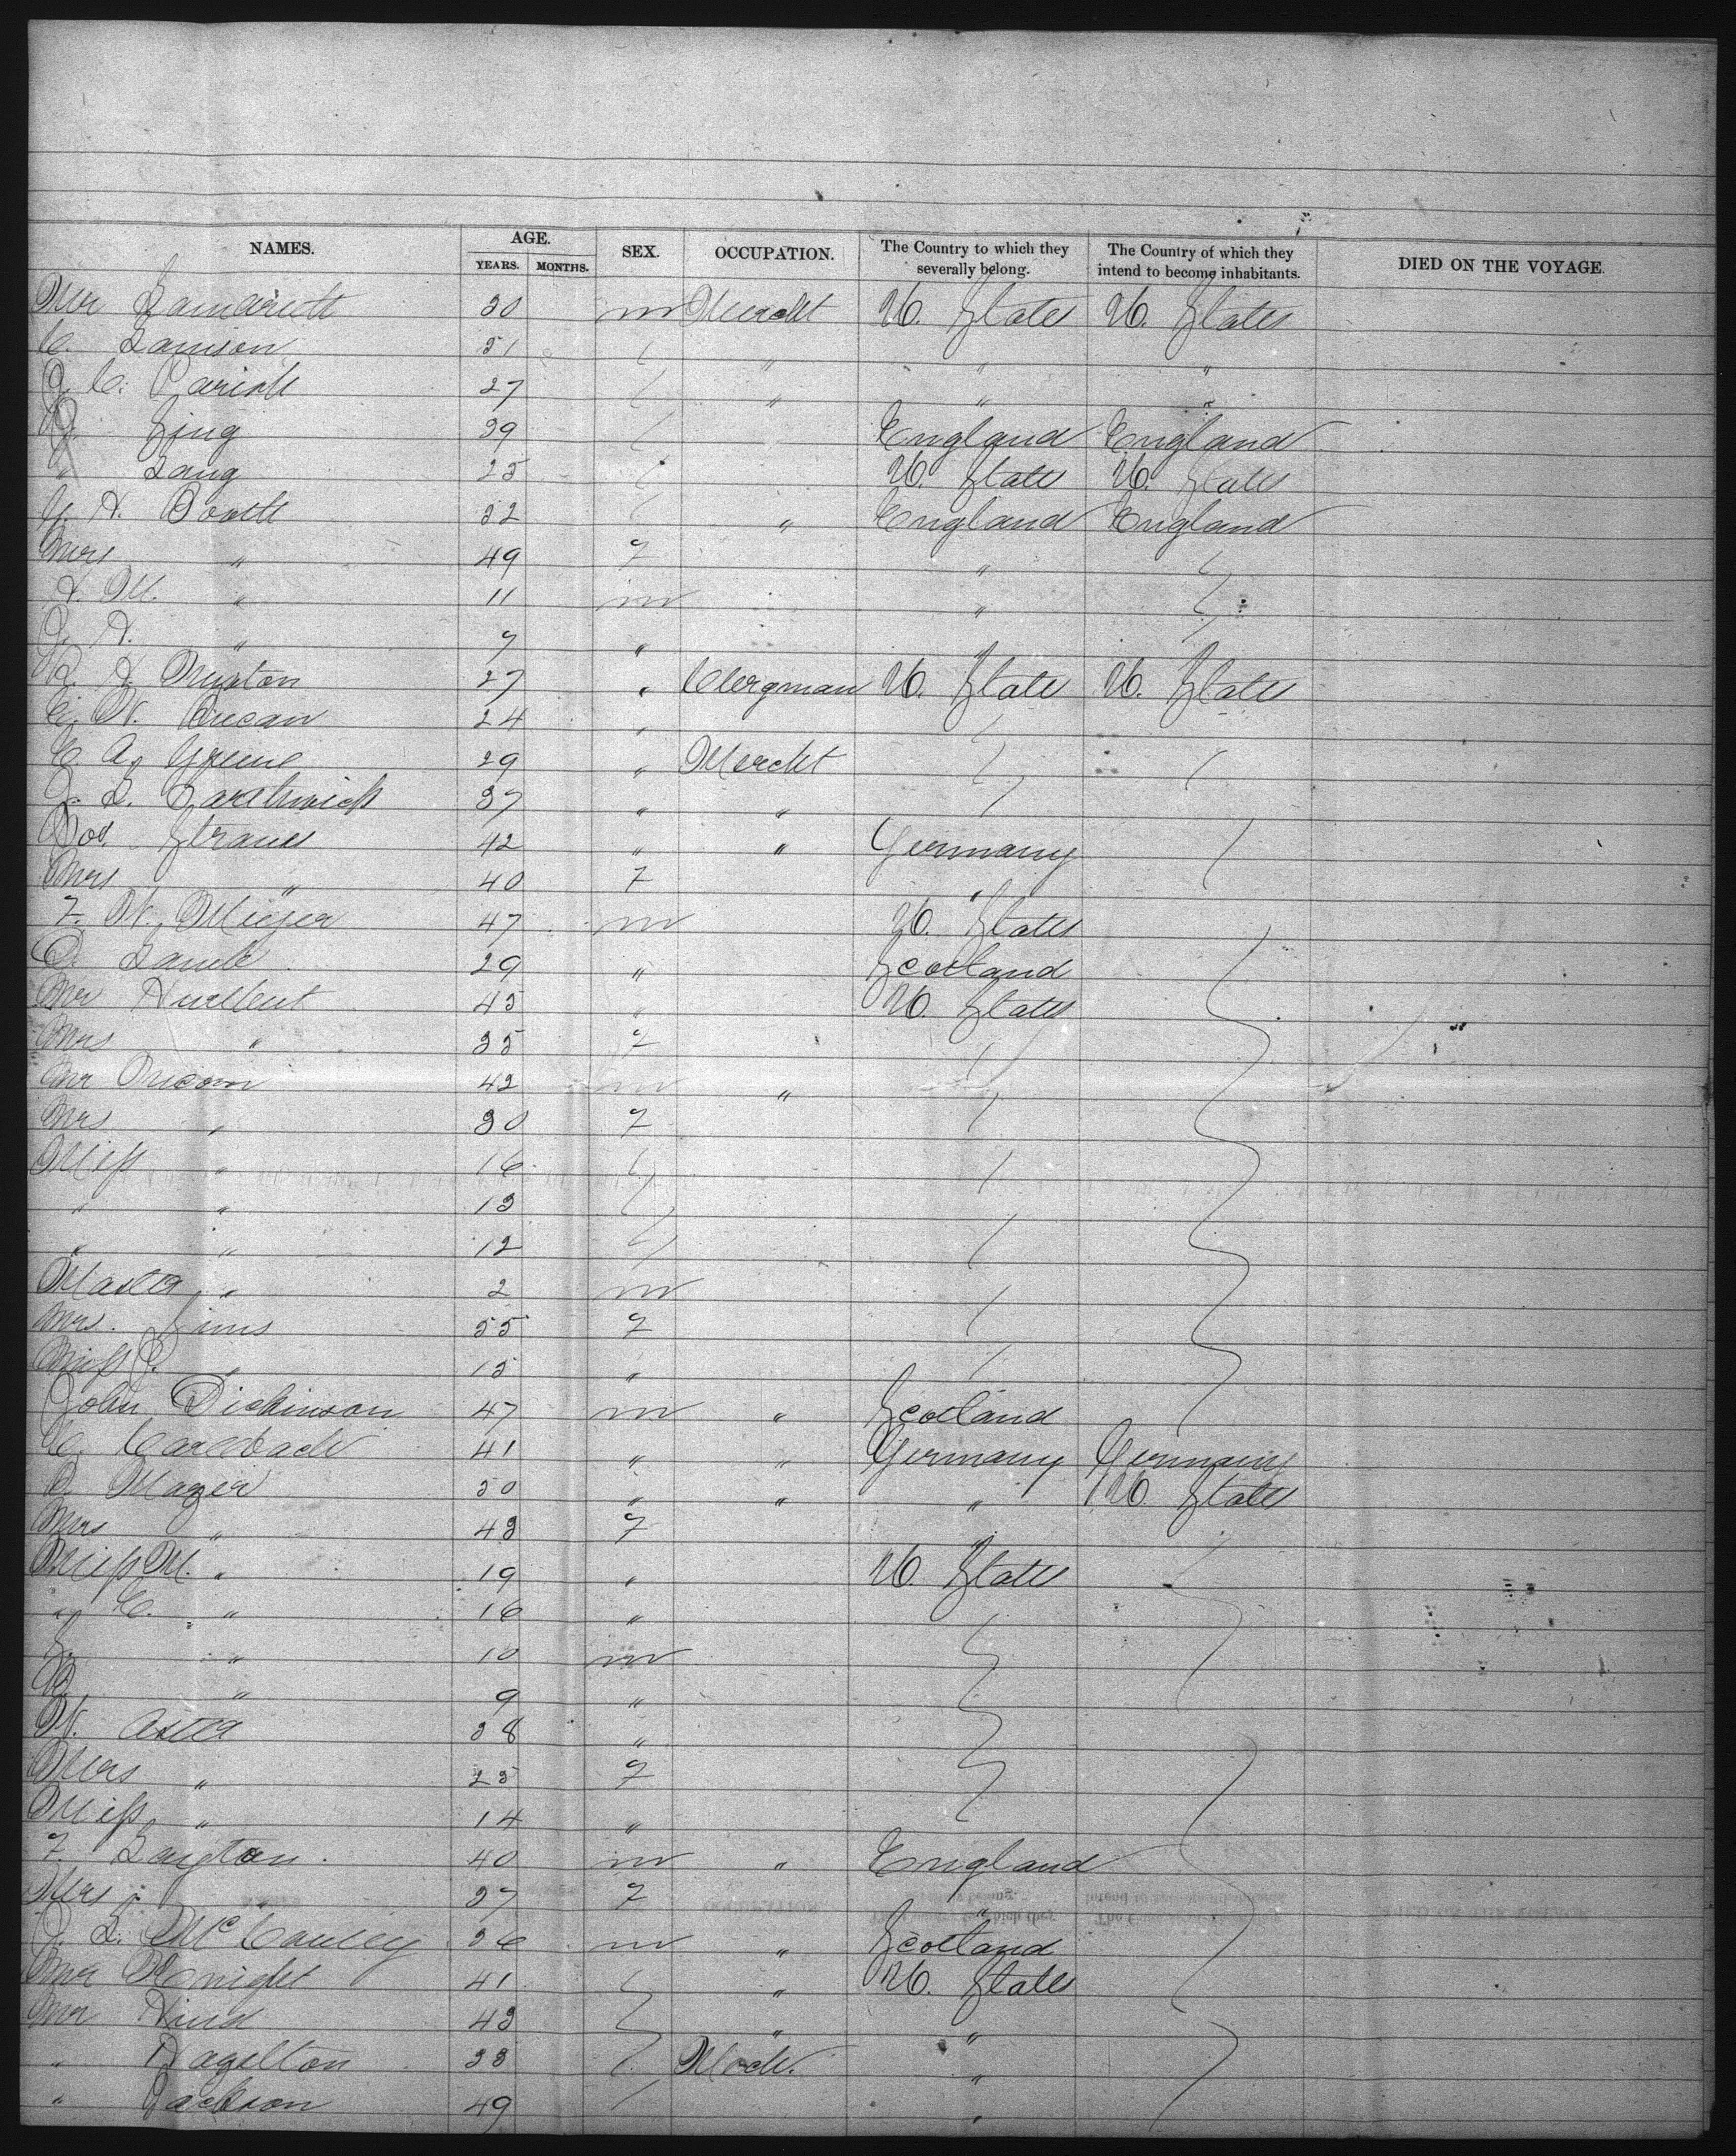 NAMES. AGE. SEX. OCCUPATION. The Country to which they severally belong. The Country of which they intend to become inhabitants. DIED ON THE VOYAGE.
YEARS. MONTHS.
Mr 30 m Mercht U. States U. States
C. Lamson 51 " " "
J. C. Parish 27 " " "
King 39 England England
" Lang 25 U. States U. States
G. H. Booth 32 " England England
Mrs " 49 F "
H. M. " 11 m "
J. H. " 7 " "
R. H. 27 " Clergman U. States U. States
E. W. 24 "
C. A. Greene 29 " Mercht
J. L. 37 " "
Jos. Straus 42 " " Germany
Mrs " 40 F "
F. W. Meyer 47 m U. States
D. Lamb 29 " Scotland
Mr Hurlbut 45 " U. States
Mrs " 35 F
Mr 42 m "
Mrs " 30 F
Miss " 16
" " 13
" " 12
Master " 2 m
Mrs. Sims 55 F
Miss P. " 15 "
John Dickinson 47 m " Scotland
C. 41 " " Germany Germany
Mager 50 " " " U. States
Mrs " 43 F
Miss M. " 19 " U. States
" C. " 16 "
S. " 10 m
" 9 "
W. Aster 38 "
Mrs " 25 F
Miss " 14 "
F. Layton. 40 m " England
Mrs " 37 F "
J. L. McCauley 36 m " Scotland
Mr Knight 41 " U. States
Mr Hind 43 " "
" Hagelton 33 "
" Jackson 49 "